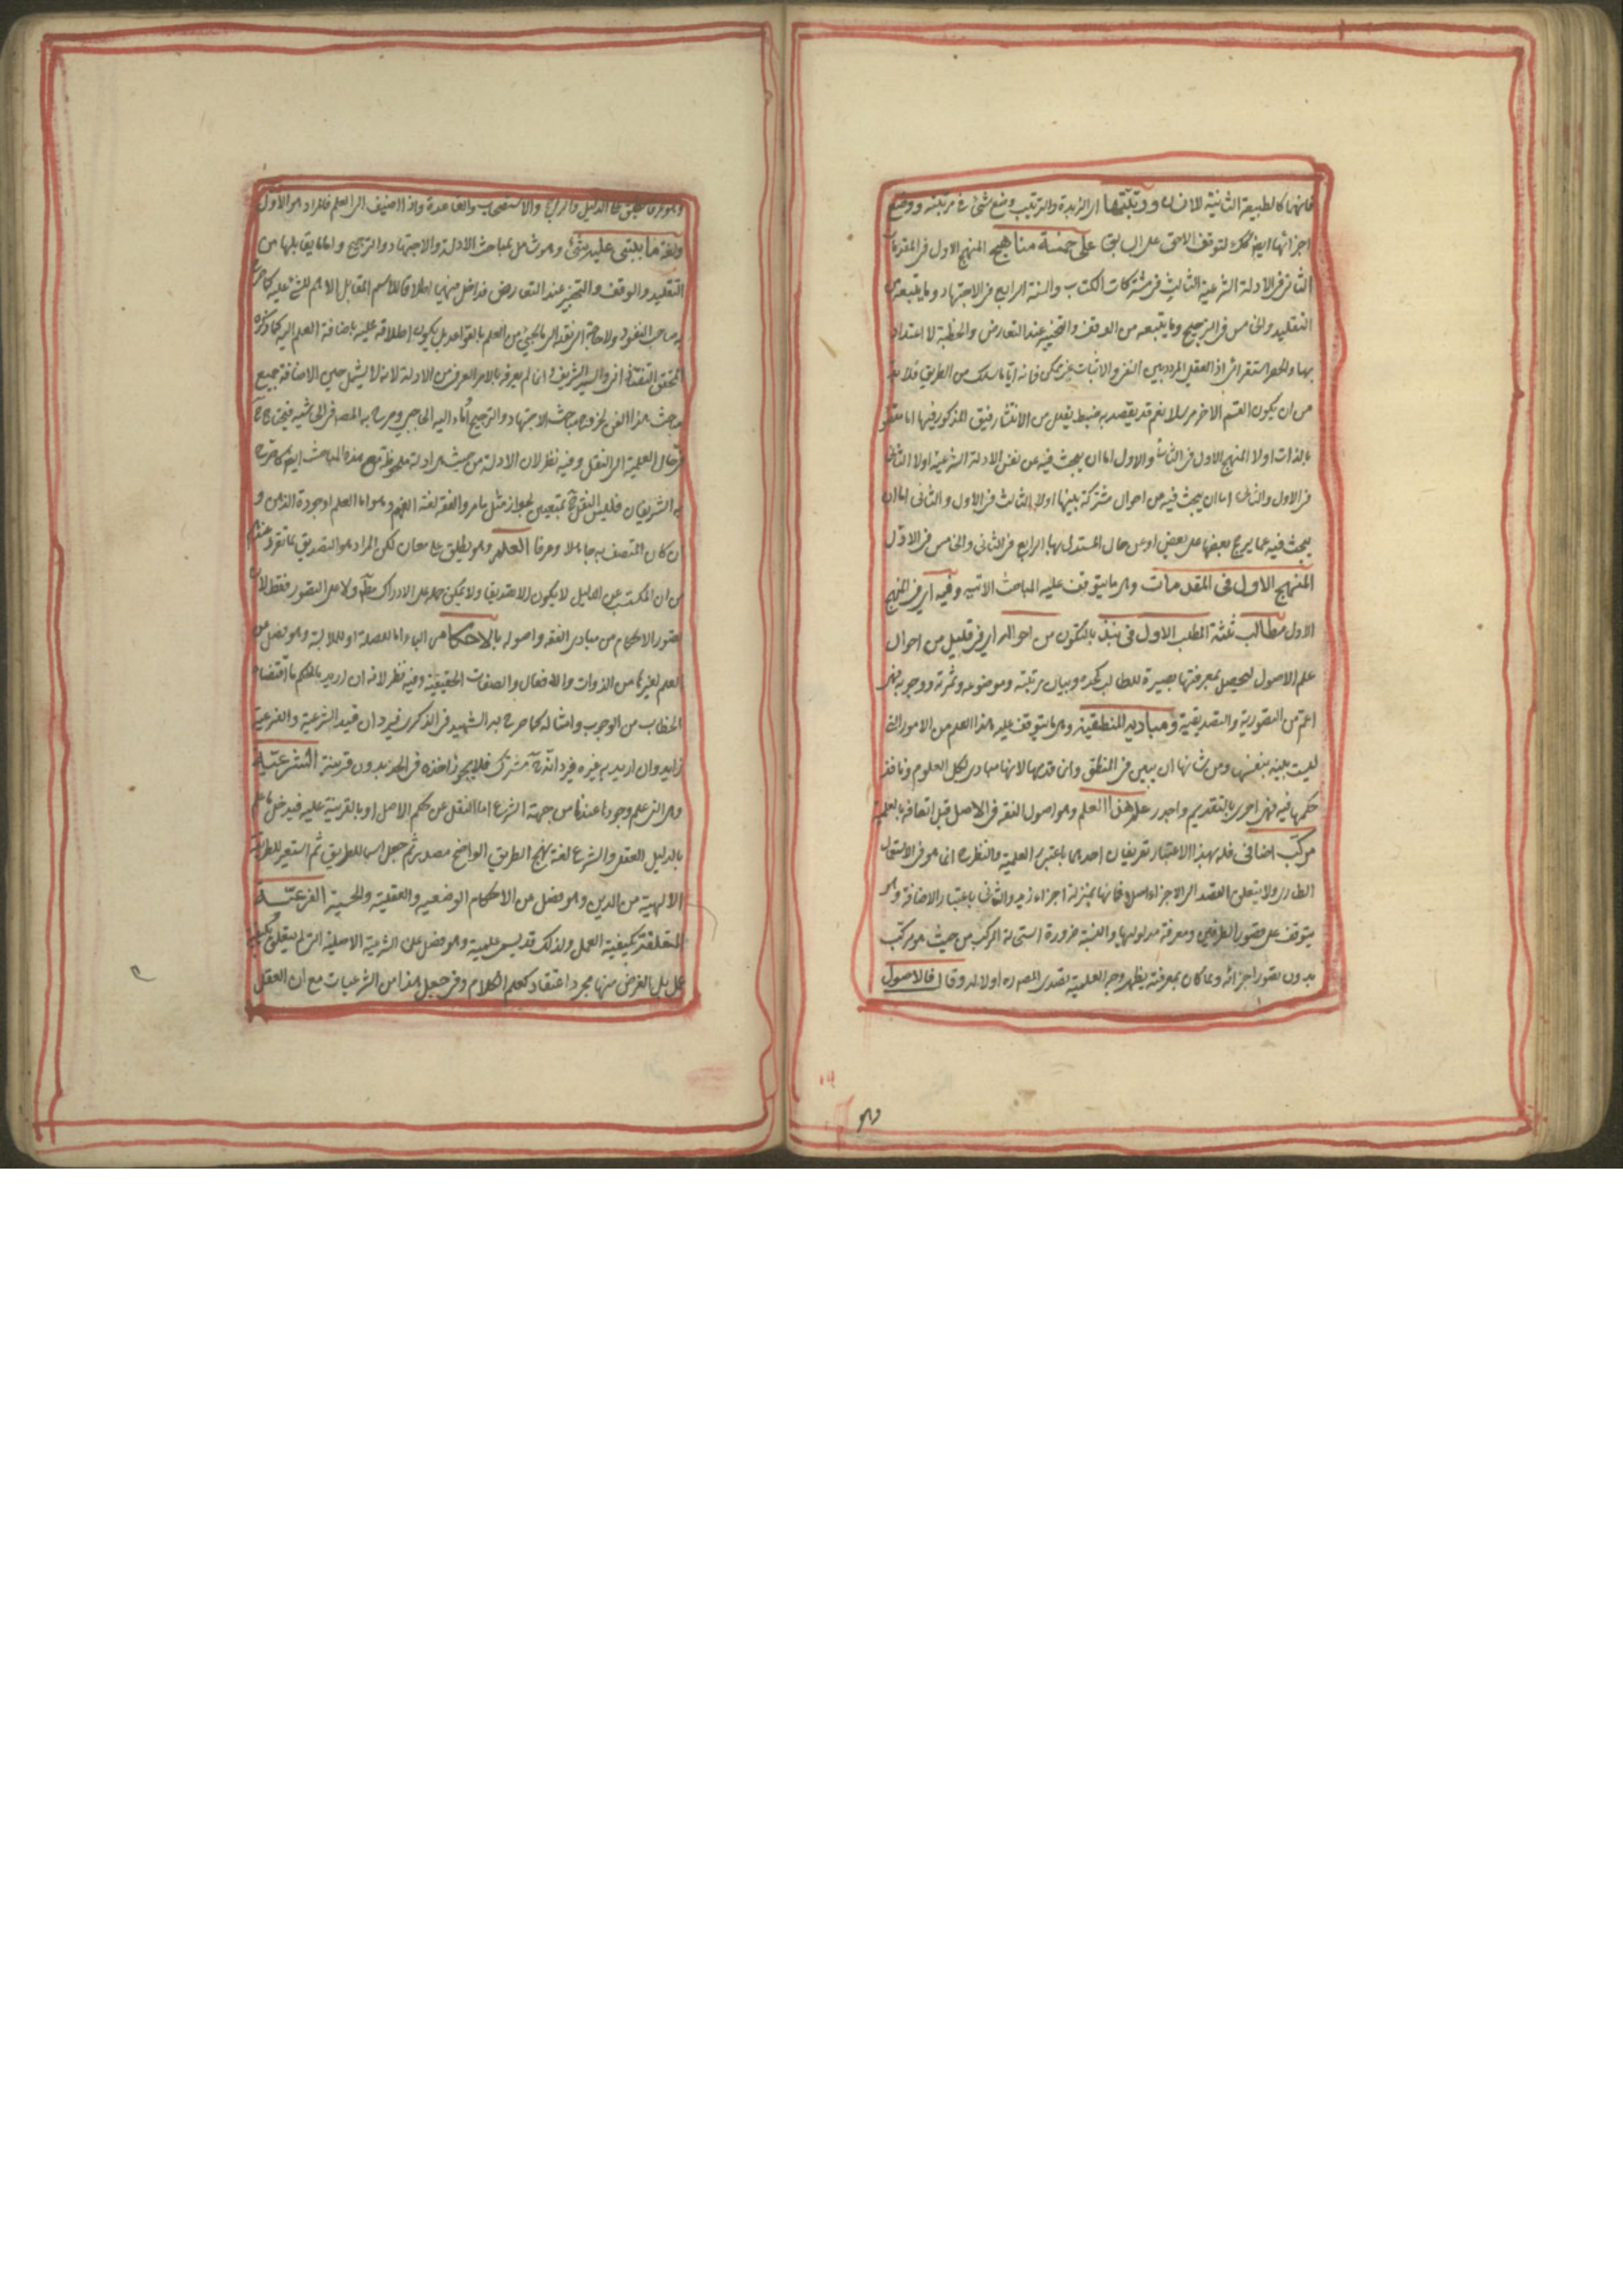 فانها كالطبيعة الثانية للانسان ورتبتها اى الزبدة والترتيب وضع شئ فى مرتبته ووضع
اجزائها ايضا كك لتوقف اللاحق على السابق على خمسة مناهج المنهج الاول فى المقدمات
الثانى فى الادلة الشرعية الثالث فى مشتركات الكتاب والسنة الرابع فى الاجتهاد وما يتبعه من
التقليد والخامس فى الترجيح وما يتبعه من الوقف والتخيير عند التعارض والخطبة لا اعتداد
بها والحصر استقرائى اذ العقلى المردد بين النفى والاثبات غير ممكن فانه ايا ما سلك من الطريق فلا بد
من ان يكون القسم الاخر مرسلا نعم قد يقصد به ضبط يقلل من الانتشار فيق المذكور فيها اما مقصود
بالذات اولا المنهج الاول فى الثانى والاول اما ان يبحث فيه عن نفس الادلة الشرعية اولا الثانى
فى الاول والثانى اما ان يبحث فيه من احوال مشتركة بينها اولا الثالث فى الاول والثانى اما ان
يبحث فيه عما يرجح بعضها على بعض او عن حال المستدل بها الرابع فى الثانى والخامس فى الاول
المنهج الاول فى المقدمات وهى ما يتوقف عليه المباحث الاتية وفيه اى فى المنهج
الاول مطالب ثلثة المطلب الاول فى نبذ بالسكون من احواله اى فى قليل من احوال
علم الاصول ليحصل بمعرفتها بصيرة للطالب كحده وبيان مرتبته وموضوعه وثمرته ووجوبه
اعم من التصورية والتصديقية ومباديه المنطقية وهى ما يتوقف عليه هذا العلم من الامور التى
ليست بينة بنفسها ومن شانها ان يبين فى المنطق وانما قدمها لانها مبادى لكل العلوم ونافذ
حكمها فيه فهى احرى بالتقديم واجدر علم هذا العلم وهو اصول الفقه فى الاصل قبل اتصافه بالعلمية
مركب اضافى فله بهذا الاعتبار تعريفان احدهما باعتبار العلمية والنظر انما هو فى الاستعمال
الطارى ولا يتعلق القصد الى الاجزاء اصلا فانها بمنزلة اجزاء زيد والثانى باعتبار الاضافة وهو
يتوقف على تصور الطرفين ومعرفة مدلوليهما والنسبة ضرورة استحالة المركب من حيث هو مركب
بدون تصور اجزائه ولما كان بمعرفته يظهر وجه العلمية تصدى المصره اولا له وقال فالاصول
وهو
وهو عرفا يطلق على الدليل والراجح والاستصحاب والقاعدة واذا اضيف الى العلم فالمراد هو الاول
ولغة ما يبتنى عليه شئ وهو شامل لمباحث الادلة والاجتهاد والترجيح واما ما يقابلها من
التقليد والوقف والتخيير عند التعارض فداخل فيها اطلاقا للاسم المقابل الاهم للشئ عليه كما صرح
به صاحب النقود ولا حاجة الى العلم بالقواعد بل يكون اطلاقه عليه باضافة العلم اليه كما ذكره
المحقق التفتازانى والسيد الشريف انما لم يعرفه بالامر العرفى من الادلة لانه لا يشمل حين الاضافة جميع
مباحث هذا الفن لخروج مباحث الاجتهاد والترجيح اماء اليه الحاجبى وصرح به المصه فى الحاشية فيحتاج
فى حال العلمية الى النقل وفيه نظر لان الادلة من حيث هى ادلة ملحوظة مع هذه المباحث ايضا كما صرح
به الشريفان فليس النقل متعين لجواز مثل ما مر والفقه لغة الفهم وهو اما العلم او جودة الذهن و
ان كان المتصف به جاهلا وعرفا العلم وهو يطلق على معان لكن المراد هو التصديق لما تقرر عندهم
من ان المكتسب عن الدليل لا يكون الا تصديقا ولا يمكن حمله على الادراك مطلقا ولا على التصور فقط لان
تصور الاحكام من مبادى الفقه واصوله بالاحكام هى الباء اما للصلة او للملابسة وهو فصل عن
العلم لغيرها من الذوات والافعال والصفات الحقيقية وفيه نظر لانه ان اريد بالحكم ما اقتضاه
الخطاب من الوجوب وامثاله كما صرح به الشهيد فى الذكرى فيرد ان قيد الشرعية والفرعية
زايد وان اريد به غيره فيرد انه مشترك فلا يجوز اخذه فى الحد بدون قرينة الشرعية
وهى التى علم وجودها عندنا من جهة الشرع اما النقل عن حكم الاصل او بالقرينة عليه فيدخل ما علم
بالدليل العقلى والشرع لغة نهج الطريق الواضح مصدر ثم جعل اسما للطريق ثم استعير للطريقة
الالهية من الدين وهو فصل من الاحكام الوضعية والعقلية والحسية الفرعية
المتعلقة بكيفية العمل ولذلك قد يسمى علمية وهو فصل عن الشرعية الاصلية التى لم يتعلق بكيفية
عمل بل الغرض منها مجرد اعتقاد كعلم الكلام وفى جعل هذا من الشرعيات مع ان العقل